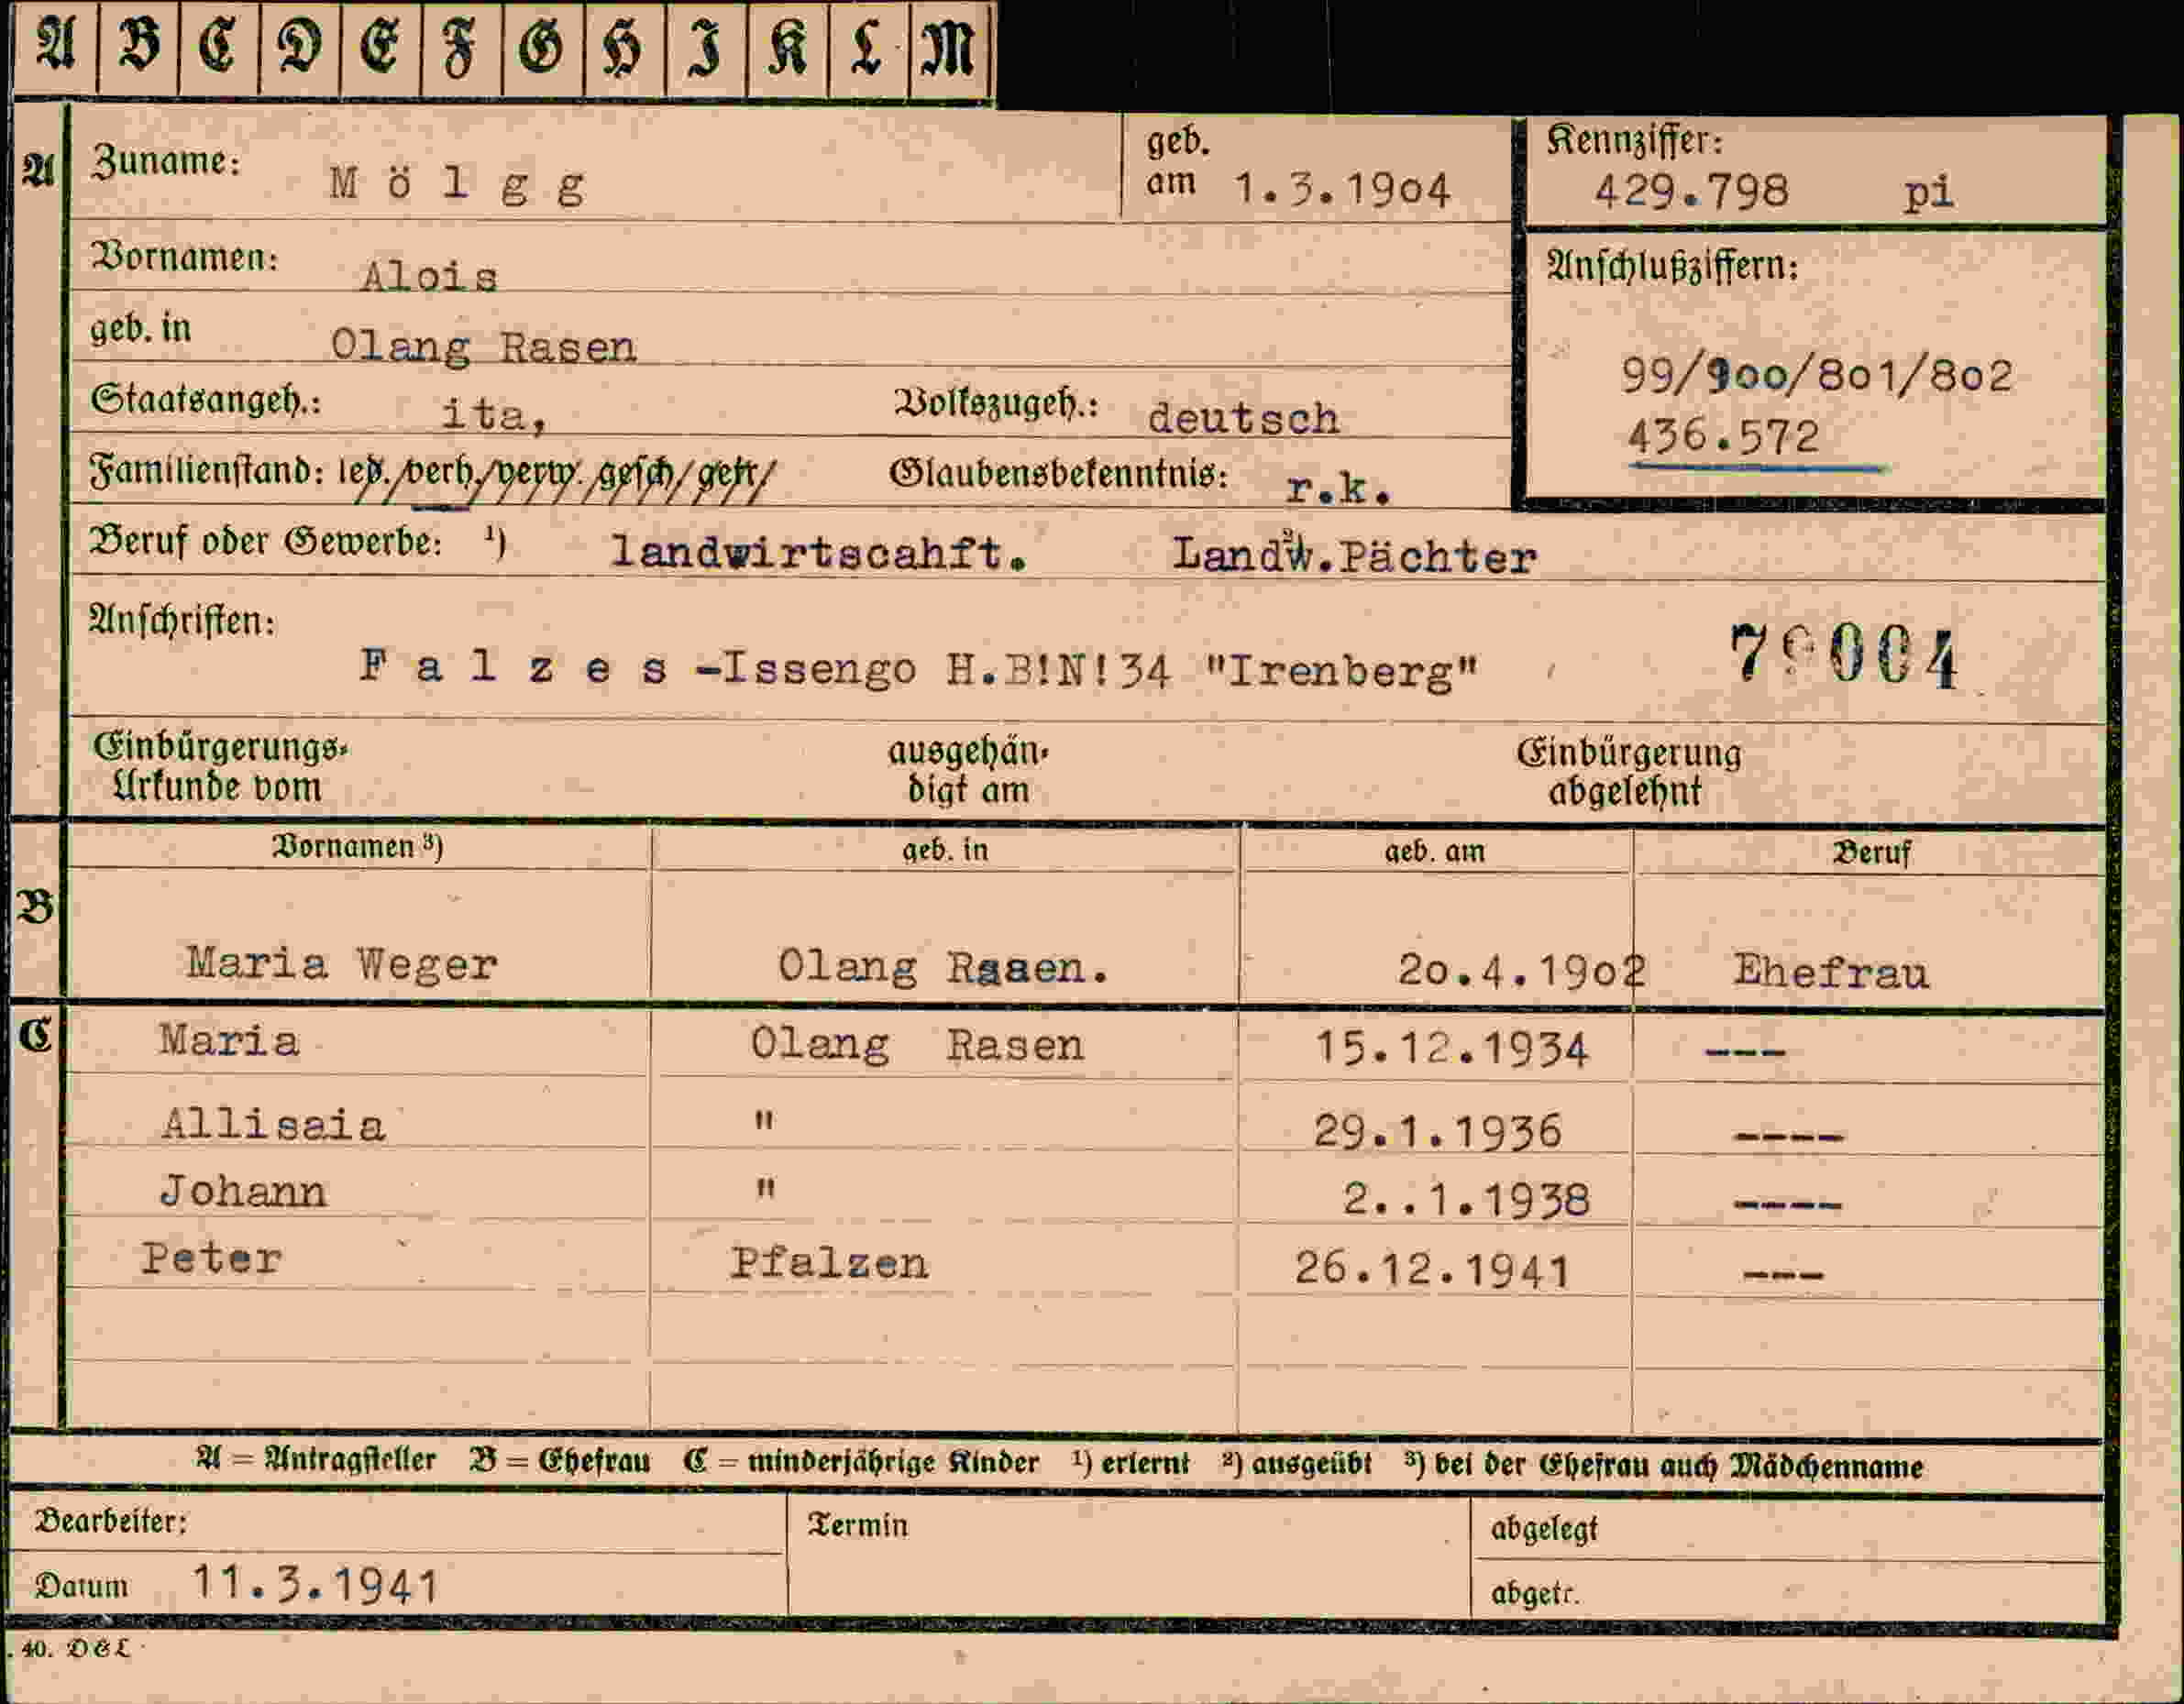 A B C D E F G H I K L M
A Zuname: Mölgg geb. am 1.3.1904 Kennziffer: 429.798 pi
Vornamen: Alois Anschlußziffern:
geb. in Olang Rasen
99/900/801/802
Staatsangeh.: ita, Volkszugeh.: deutsch
436.572
Familienstand: led./verh./verw./gesch/getr/ Glaubensbekenntnis: r.k.
Beruf oder Gewerbe: ¹) landwirtscahft. ²) Landw.Pächter
Anschriften:
Falzes-Issengo H.B!N!34 "Irenberg"
Einbürgerungs- ausgehän- Einbürgerung
Urkunde vom digt am abgelehnt
Vornamen ³) geb. in geb. am Beruf
B
Maria Weger Olang Raaen. 20.4.1902 Ehefrau
C Maria Olang Rasen 15.12.1934 ---
Allisaia " 29.1.1936 ----
Johann " 2..1.1938 ----
Peter Pfalzen 26.12.1941 ---
A = Antragsteller B = Ehefrau C = minderjährige Kinder ¹) erlernt ²) ausgeübt ³) bei der Ehefrau auch Mädchenname
Bearbeiter: Termin abgelegt
Datum 11.3.1941 abgetr.
. 40. D&L